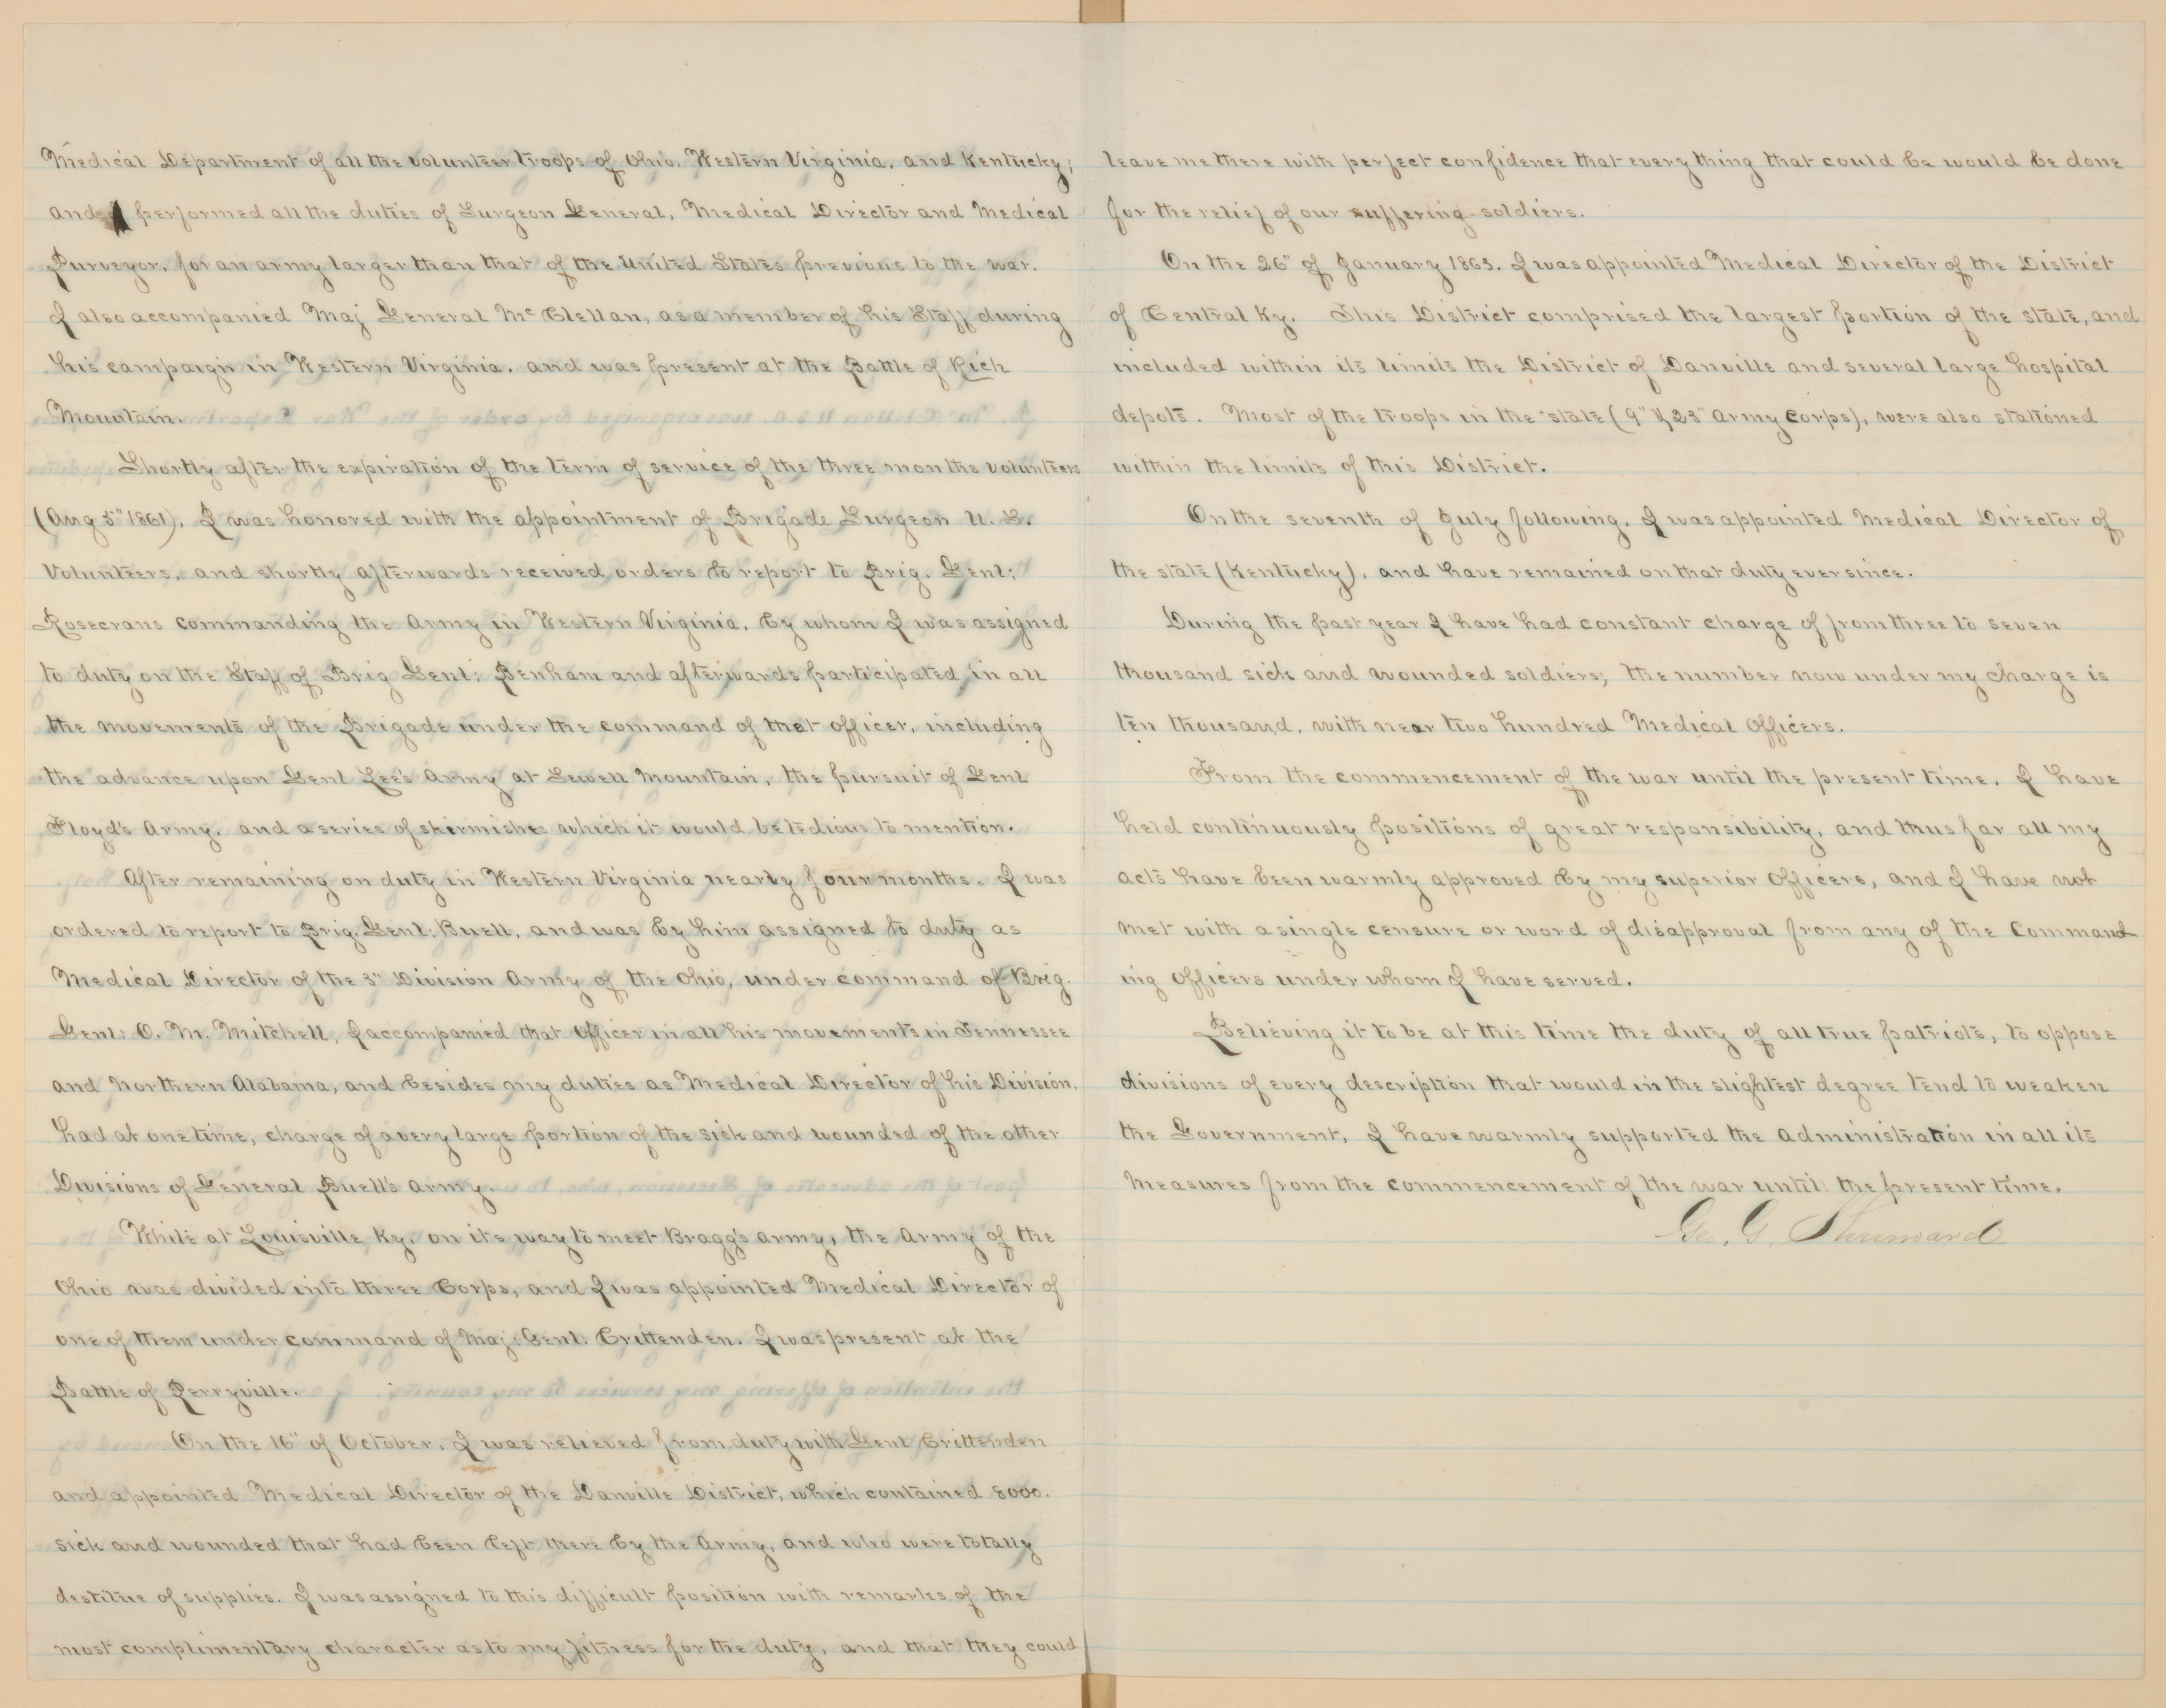 Medical Department of all the volunteer troops of Ohio, Western Virginia, and Kentucky;
and performed all the duties of Surgeon General, Medical Director and Medical
Purveyor, for an army larger than that of the United States previous to the war.
I also accompanied Maj General McClellan, as a member of his Staff during
his campaign in Western Virginia, and was present at the Battle of Rich
Mountain.
Shortly after the expiration of the term of service of the three months volunteers
(Aug 3" 1861), I was honored with the appointment of Brigade Surgeon U. S.
Volunteers, and shortly afterwards received orders to report to Brig. Genl:
Rosecrans commanding the Army in Western Virginia, by whom I was assigned
to duty on the Staff of Brig Genl: Benham and afterwards participated in all
the movements of the Brigade under the command of that officer, including
the advance upon Genl Lee's Army at Sewell Mountain, the pursuit of Genl
Floyd's Army, and a series of skirmishes which it would be tedious to mention.
After remaining on duty in Western Virginia nearly four months, I was
ordered to report to Brig. Genl: Buell, and was by him assigned to duty as
Medical Director of the 3" Division Army of the Ohio, under command of Brig.
Genl: O. M. Mitchell, I accompanied that officer in all his movements in Tennessee
and Northern Alabama, and besides my duties as Medical Director of his Division,
had at one time, charge of a very large portion of the sick and wounded of the other
Divisions of General Buell's army.
While at Louisville Ky. on its way to meet Bragg's army, the Army of the
Ohio was divided into three Corps, and I was appointed Medical Director of
one of them under command of Maj: Genl: Crittenden. I was present at the
Battle of Perryville.
On the 16" of October, I was relieved from duty with Genl Crittenden
and appointed Medical Director of the Danville District, which contained 8000.
sick and wounded that had been left there by the Army, and who were totally
destitue of supplies. I was assigned to this difficult position with remarks of the
most complimentary character as to my fitness for the duty, and that they could
leave me there with perfect confidence that every thing that could be would be done
for the relief of our suffering soldiers.
On the 26" of January 1863. I was appointed Medical Director of the District
of Central Ky. This District comprised the largest portion of the state, and
included within its limits the District of Danville and several large hospital
depots. Most of the troops in the state (9" & 23" Army Corps), were also stationed
within the limits of this District.
On the seventh of July following, I was appointed Medical Director of
the state (Kentucky), and have remained on that duty ever since.
During the past year I have had constant charge of from three to seven
thousand sick and wounded soldiers; the number now under my charge is
ten thousand, with near two hundred Medical Officers.
From the commencement of the war until the present time, I have
held continuously positions of great responsibility, and thus far all my
acts have been warmly approved by my superior Officers, and I have not
met with a single censure or word of disapproval from any of the Command
ing Officers under whom I have served.
Believing it to be at this time the duty of all true patriots, to oppose
divisions of every description that would in the slightest degree tend to weaken
the Government, I have warmly supported the Administration in all its
measures from the commencement of the war until the present time.
Geo. G. Shumard